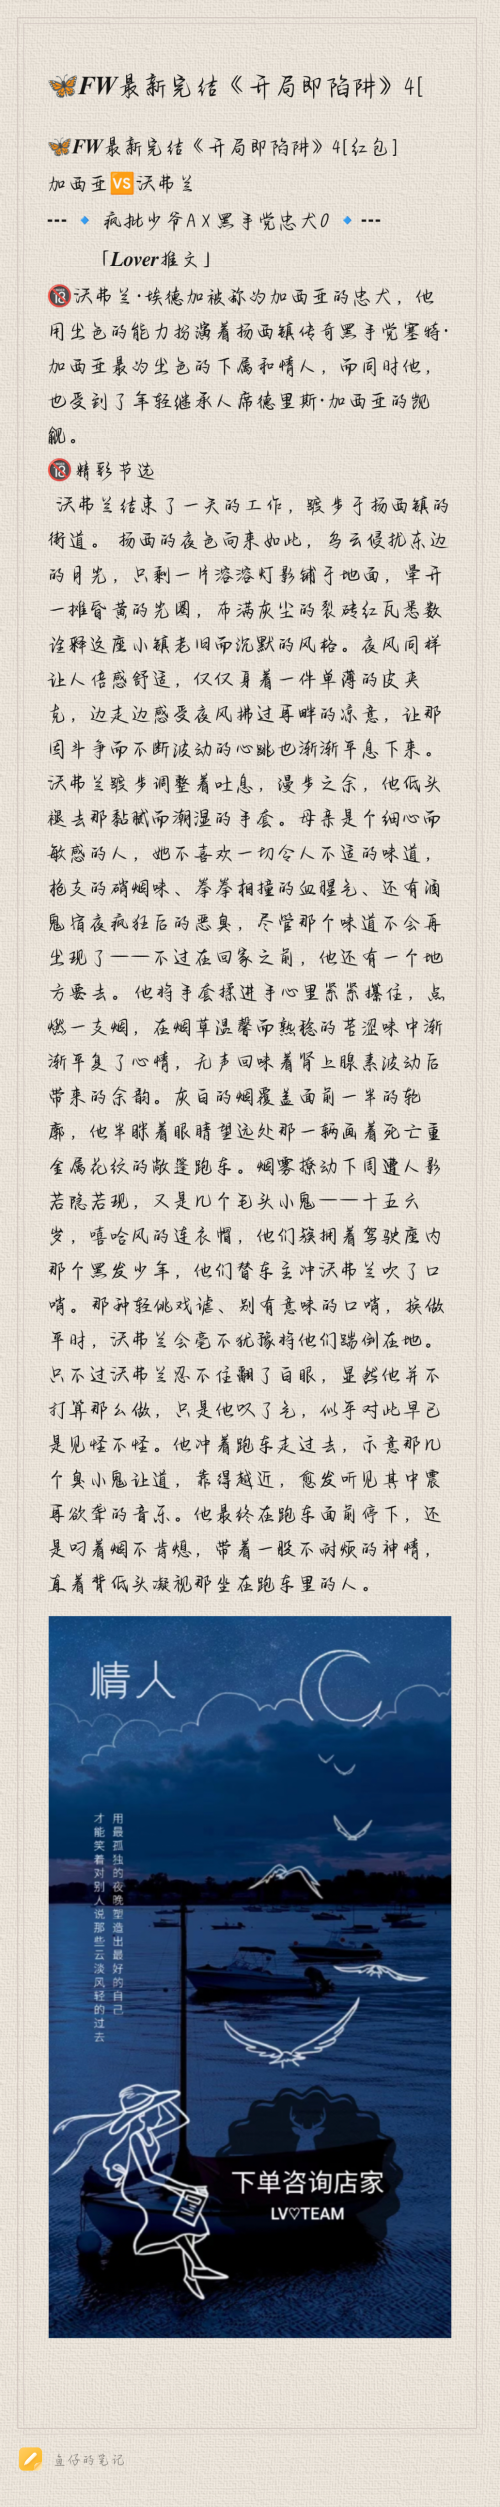 🦋FW最新完结《开局即陷阱》4[
🦋FW最新完结《开局即陷阱》4[红包]
加西亚🆚沃弗兰
--- 🔹 疯批少爷A X 黑手党忠犬0 🔹---
「Lover推文」
🔞沃弗兰·埃德加被称为加西亚的忠犬，他
用出色的能力扮演着扬西镇传奇黑手党塞特·
加西亚最为出色的下属和情人，而同时他，
也受到了年轻继承人席德里斯·加西亚的觊
觎。
🔞精彩节选
沃弗兰结束了一天的工作，踱步于扬西镇的
街道。 扬西的夜色向来如此，乌云侵扰东边
的月光，只剩一片溶溶灯影铺于地面，晕开
一摊昏黄的光圈，布满灰尘的裂砖红瓦悉数
诠释这座小镇老旧而沉默的风格。夜风同样
让人倍感舒适，仅仅身着一件单薄的皮夹
克，边走边感受夜风拂过耳畔的凉意，让那
因斗争而不断波动的心跳也渐渐平息下来。
沃弗兰踱步调整着吐息，漫步之余，他低头
褪去那黏腻而潮湿的手套。母亲是个细心而
敏感的人，她不喜欢一切令人不适的味道，
枪支的硝烟味、拳拳相撞的血腥气、还有酒
鬼宿夜疯狂后的恶臭，尽管那个味道不会再
出现了——不过在回家之前，他还有一个地
方要去。他将手套揉进手心里紧紧攥住，点
燃一支烟，在烟草温馨而熟稔的苦涩味中渐
渐平复了心情，无声回味着肾上腺素波动后
带来的余韵。灰白的烟覆盖面前一半的轮
廓，他半眯着眼睛望远处那一辆画着死亡重
金属花纹的敞篷跑车。烟雾撩动下周遭人影
若隐若现，又是几个毛头小鬼——十五六
岁，嘻哈风的连衣帽，他们簇拥着驾驶座内
那个黑发少年，他们替车主冲沃弗兰吹了口
哨。那种轻佻戏谑、别有意味的口哨，换做
平时，沃弗兰会毫不犹豫将他们踹倒在地。
只不过沃弗兰忍不住翻了白眼，显然他并不
打算那么做，只是他叹了气，似乎对此早已
是见怪不怪。他冲着跑车走过去，示意那几
个臭小鬼让道，靠得越近，愈发听见其中震
耳欲聋的音乐。他最终在跑车面前停下，还
是叼着烟不肯熄，带着一股不耐烦的神情，
直着背低头凝视那坐在跑车里的人。
情人
用最孤独的夜晚塑造出最好的自己
才能笑着对别人说那些云淡风轻的过去
下单咨询店家
LV♡TEAM
鱼仔的笔记